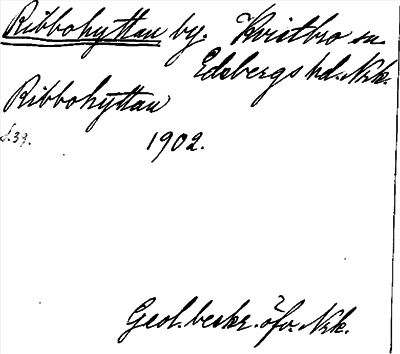 Ribbohyttan by. Kvistbro sn.
Edsbergs hd. Nrk.
Ribbohyttan
s. 39. 1902.
Geol. beskr. öfv. Nrk.